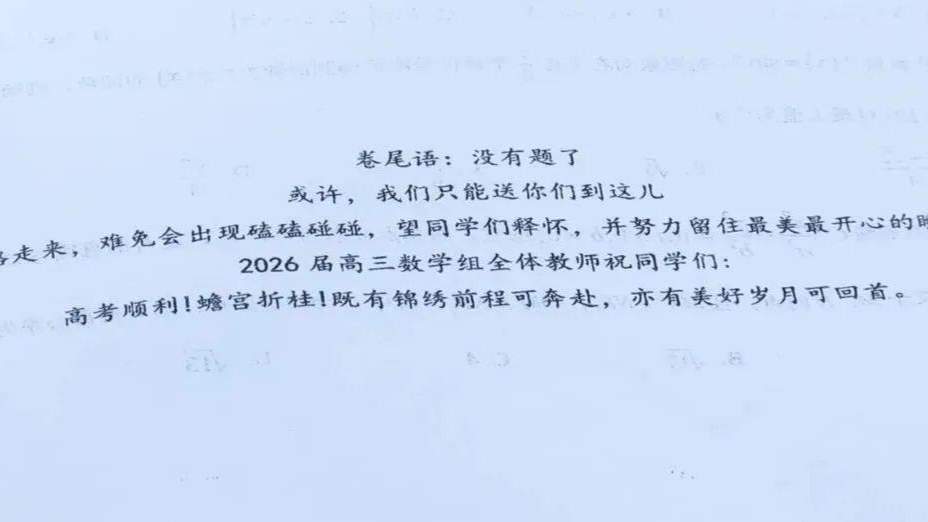 卷尾语：没有题了
或许，我们只能送你们到这儿
走来，难免会出现磕磕碰碰，望同学们释怀，并努力留住最美最开心的
2026 届高三数学组全体教师祝同学们：
高考顺利！蟾宫折桂！既有锦绣前程可奔赴，亦有美好岁月可回首。